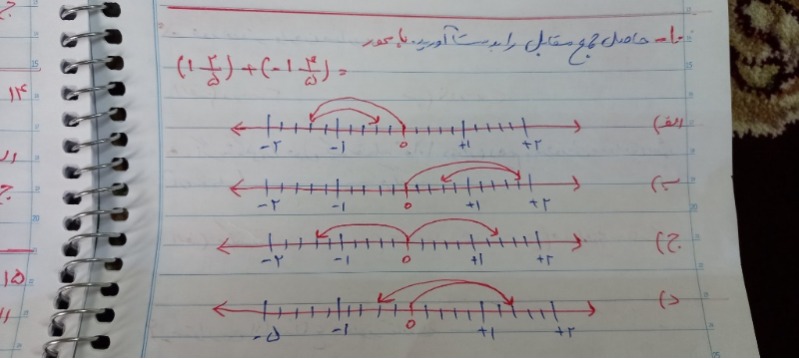 ۱۰- حاصل جمع مقابل را بدست آورید. با محور
(۱ ۲/۵) + (-۱ ۴/۵) =
الف)
-۲ -۱ ۰ +۱ +۲
ب)
-۲ -۱ ۰ +۱ +۲
ج)
-۲ -۱ ۰ +۱ +۲
د)
-۵ -۱ ۰ +۱ +۲
ج
۱۴
ج
۱۵